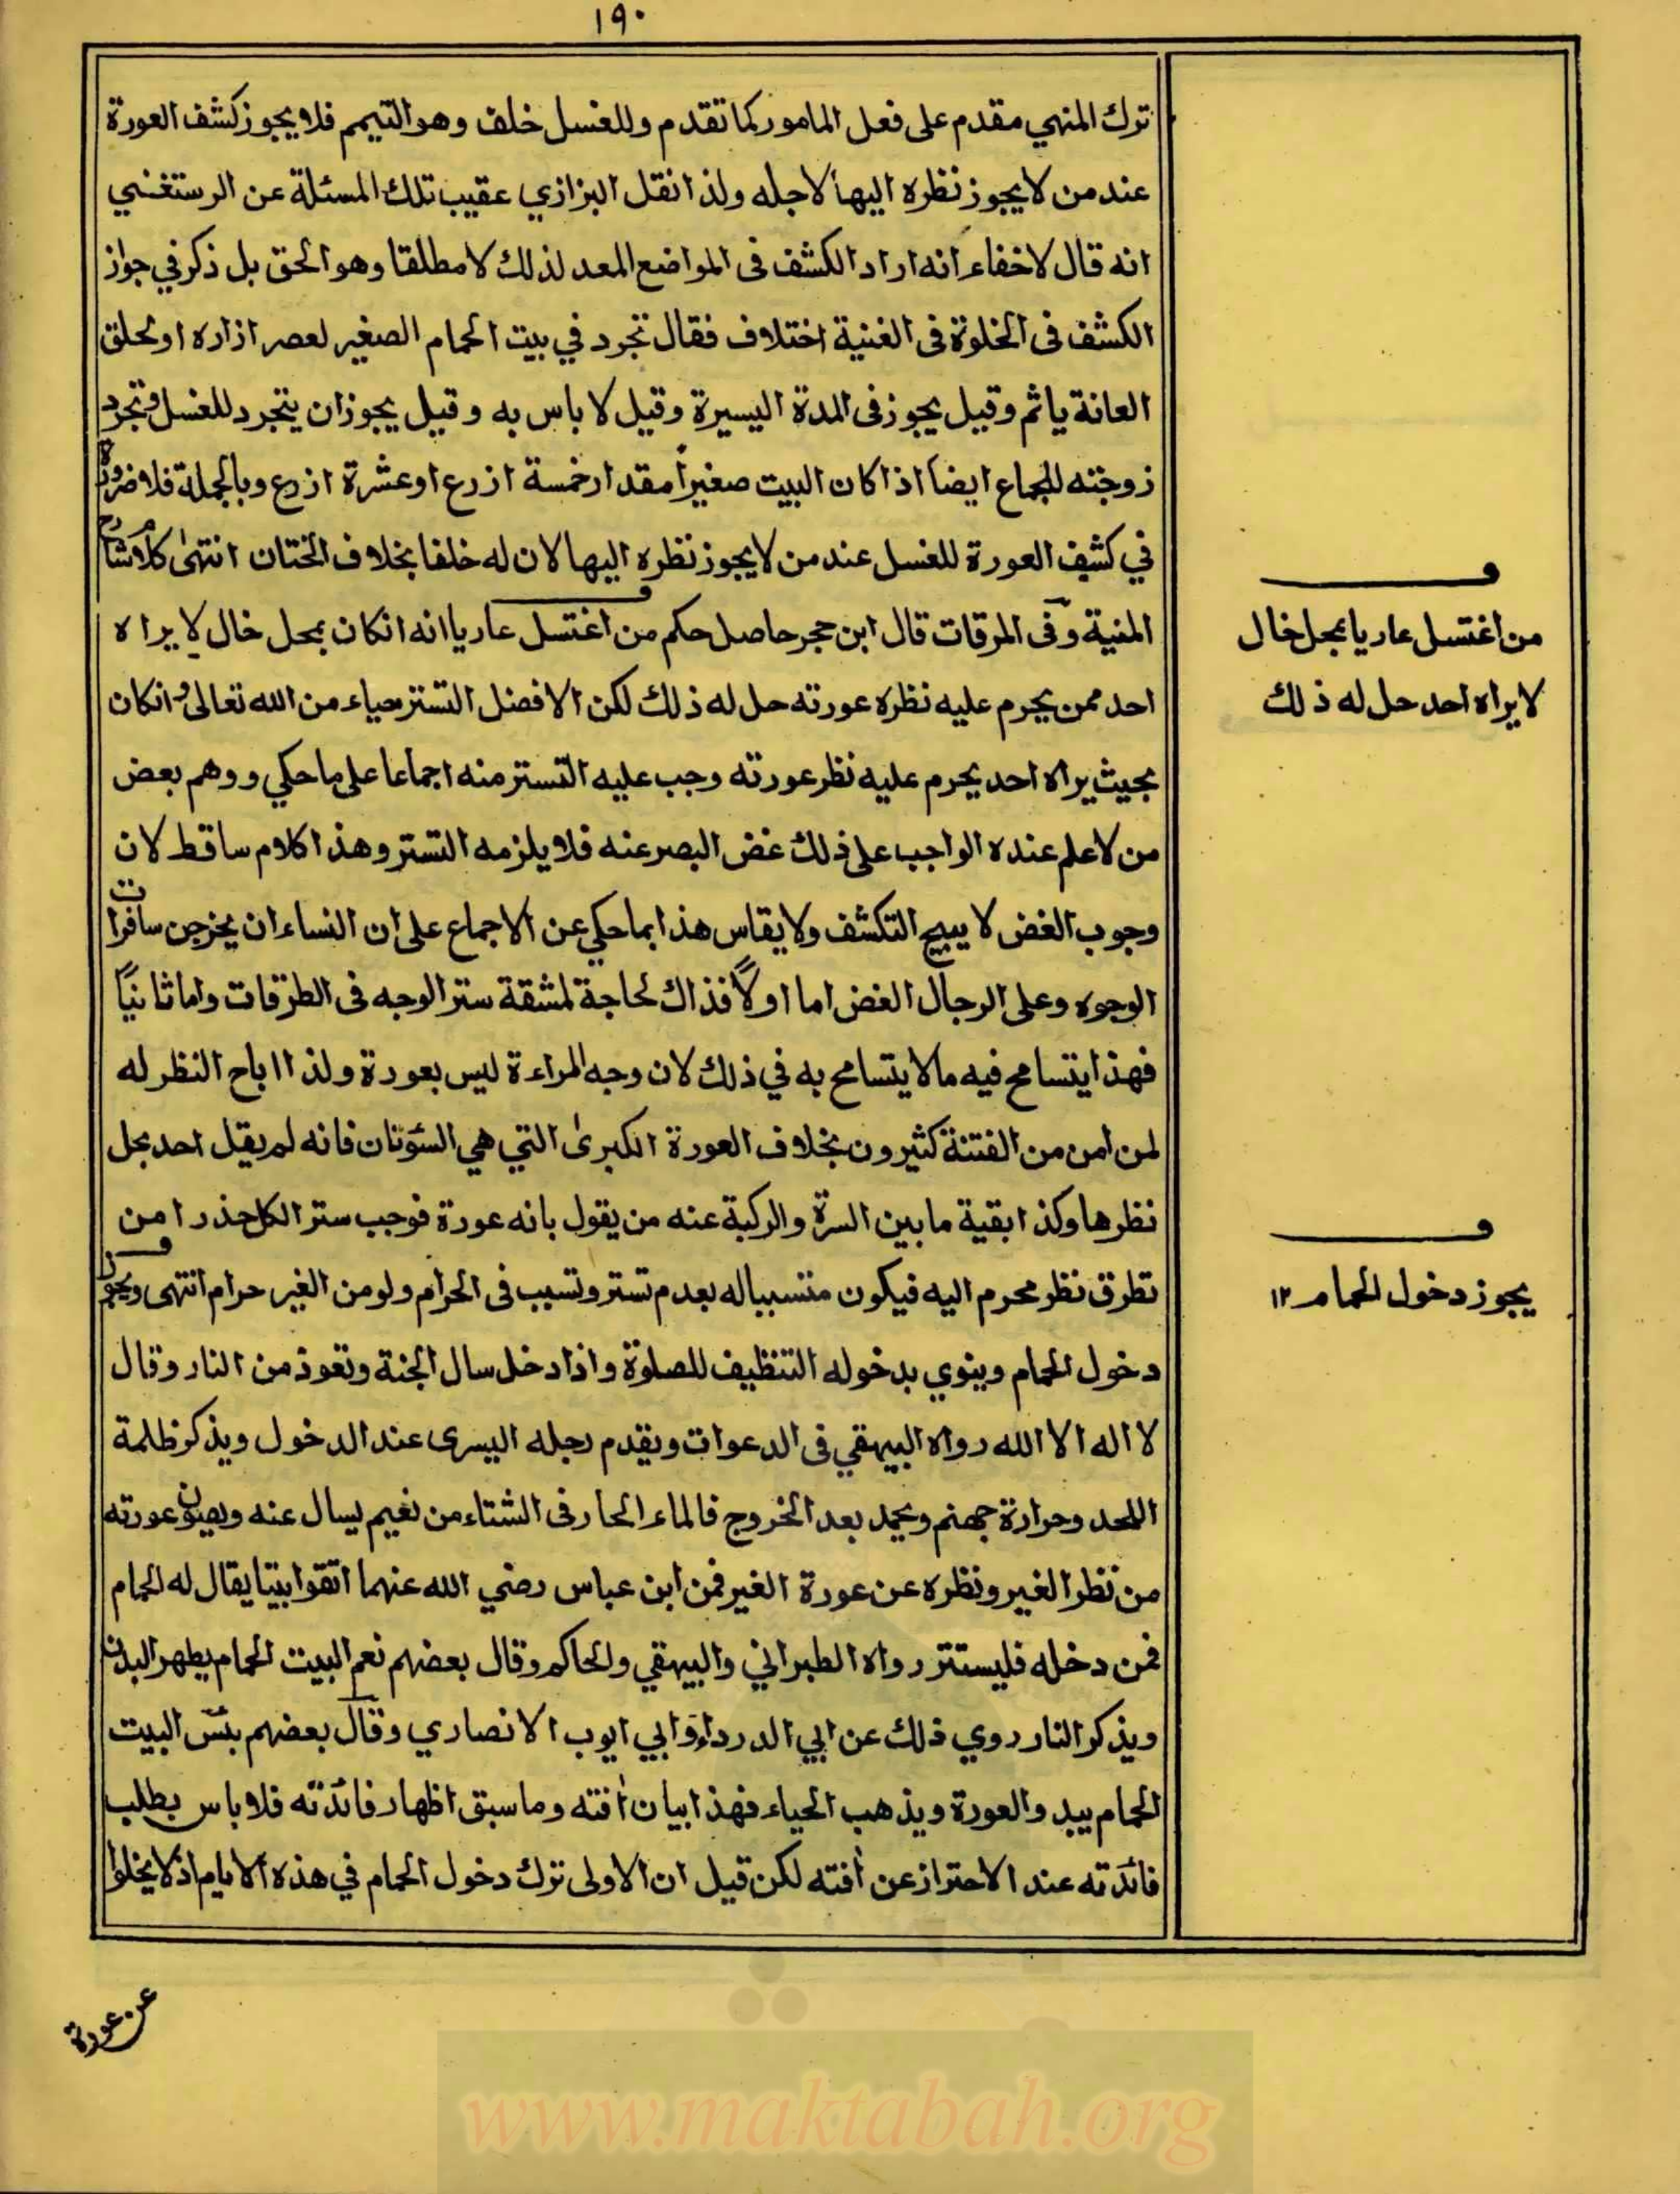 ١٩٠
ترك المنهي مقدم على فعل المامور كما تقدم وللغسل خلف وهو التيمم فلا يجوز كشف العورة
عند من لا يجوز نظره اليها لاجله ولذا نقل البزازي عقيب تلك المسئلة عن الرستغنسي
انه قال لا خفاء انه اراد الكشف فى المواضع المعد لذلك لا مطلقا وهو الحق بل ذكر في جواز
الكشف فى الخلوة فى الغنية اختلاف فقال تجرد في بيت الحمام الصغير لعصر ازاره او لحلق
العانة ياثم وقيل يجوز فى المدة اليسيرة وقيل لا باس به وقيل يجوز ان يتجرد للغسل وتجرد
زوجته للجماع ايضا اذا كان البيت صغيرا مقدار خمسة ازرع او عشرة ازرع وبالجملة فلا ضرورة
في كشف العورة للغسل عند من لا يجوز نظره اليها لان له خلفا بخلاف الختان انتهى كلام شارح
المنية وفى المرقات قال ابن حجر حاصل حكم من اغتسل عاريا انه انكان بمحل خال لا يراه
احد ممن يحرم عليه نظره عورته حل له ذلك لكن الافضل التستر حياء من الله تعالى وانكان
بحيث يراه احد يحرم عليه نظر عورته وجب عليه التستر منه اجماعا على ما حكي ووهم بعض
من لا علم عنده الواجب على ذلك غض البصر عنه فلا يلزمه التستر وهذا كلام ساقط لان
وجوب الغض لا يبيح التكشف ولا يقاس هذا بما حكي عن الاجماع على ان النساء ان يخرجن سافرات
الوجوه وعلى الرجال الغض اما اولا فذاك لحاجة لمشقة ستر الوجه فى الطرقات واما ثانيا
فهذا يتسامح فيه ما لا يتسامح به في ذلك لان وجه المراءة ليس بعورة ولذا اباح النظر له
لمن امن من الفتنة كثيرون بخلاف العورة الكبرى التي هي السوئتان فانه لم يقل احد بحل
نظرها وكذا بقية ما بين السرة والركبة عنه من يقول بانه عورة فوجب ستر الكل حذرا من
تطرق نظر محرم اليه فيكون متسببا له بعدم تستر وتسبب فى الحرام ولو من الغير حرام انتهى ويجوز
دخول الحمام وينوي بدخوله التنظيف للصلوة واذا دخل سال الجنة وتعوذ من النار وقال
لا اله الا الله رواه البيهقي فى الدعوات ويقدم رجله اليسرى عند الدخول ويذكر ظلمة
اللحد وحرارة جهنم ويحمد بعد الخروج فالماء الحار فى الشتاء من نعيم يسال عنه ويصون عورته
من نظر الغير ونظره عن عورة الغير فمن ابن عباس رضي الله عنهما اتقوا بيتا يقال له الحمام
فمن دخله فليستتر رواه الطبراني والبيهقي والحاكم وقال بعضهم نعم البيت الحمام يطهر البدن
ويذكر النار روي ذلك عن ابي الدرداء وابي ايوب الانصاري وقال بعضهم بئس البيت
الحمام يبدو العورة ويذهب الحياء فهذا بيان افته وما سبق اظهار فائدته فلا باس بطلب
فائدته عند الاحتراز عن افته لكن قيل ان الاولى ترك دخول الحمام في هذه الايام اذ لا يخلوا
عن عورة
من اغتسل عاريا بمحل خال
لا يراه احد حل له ذلك
يجوز دخول الحمام ١٢
www.maktabah.org